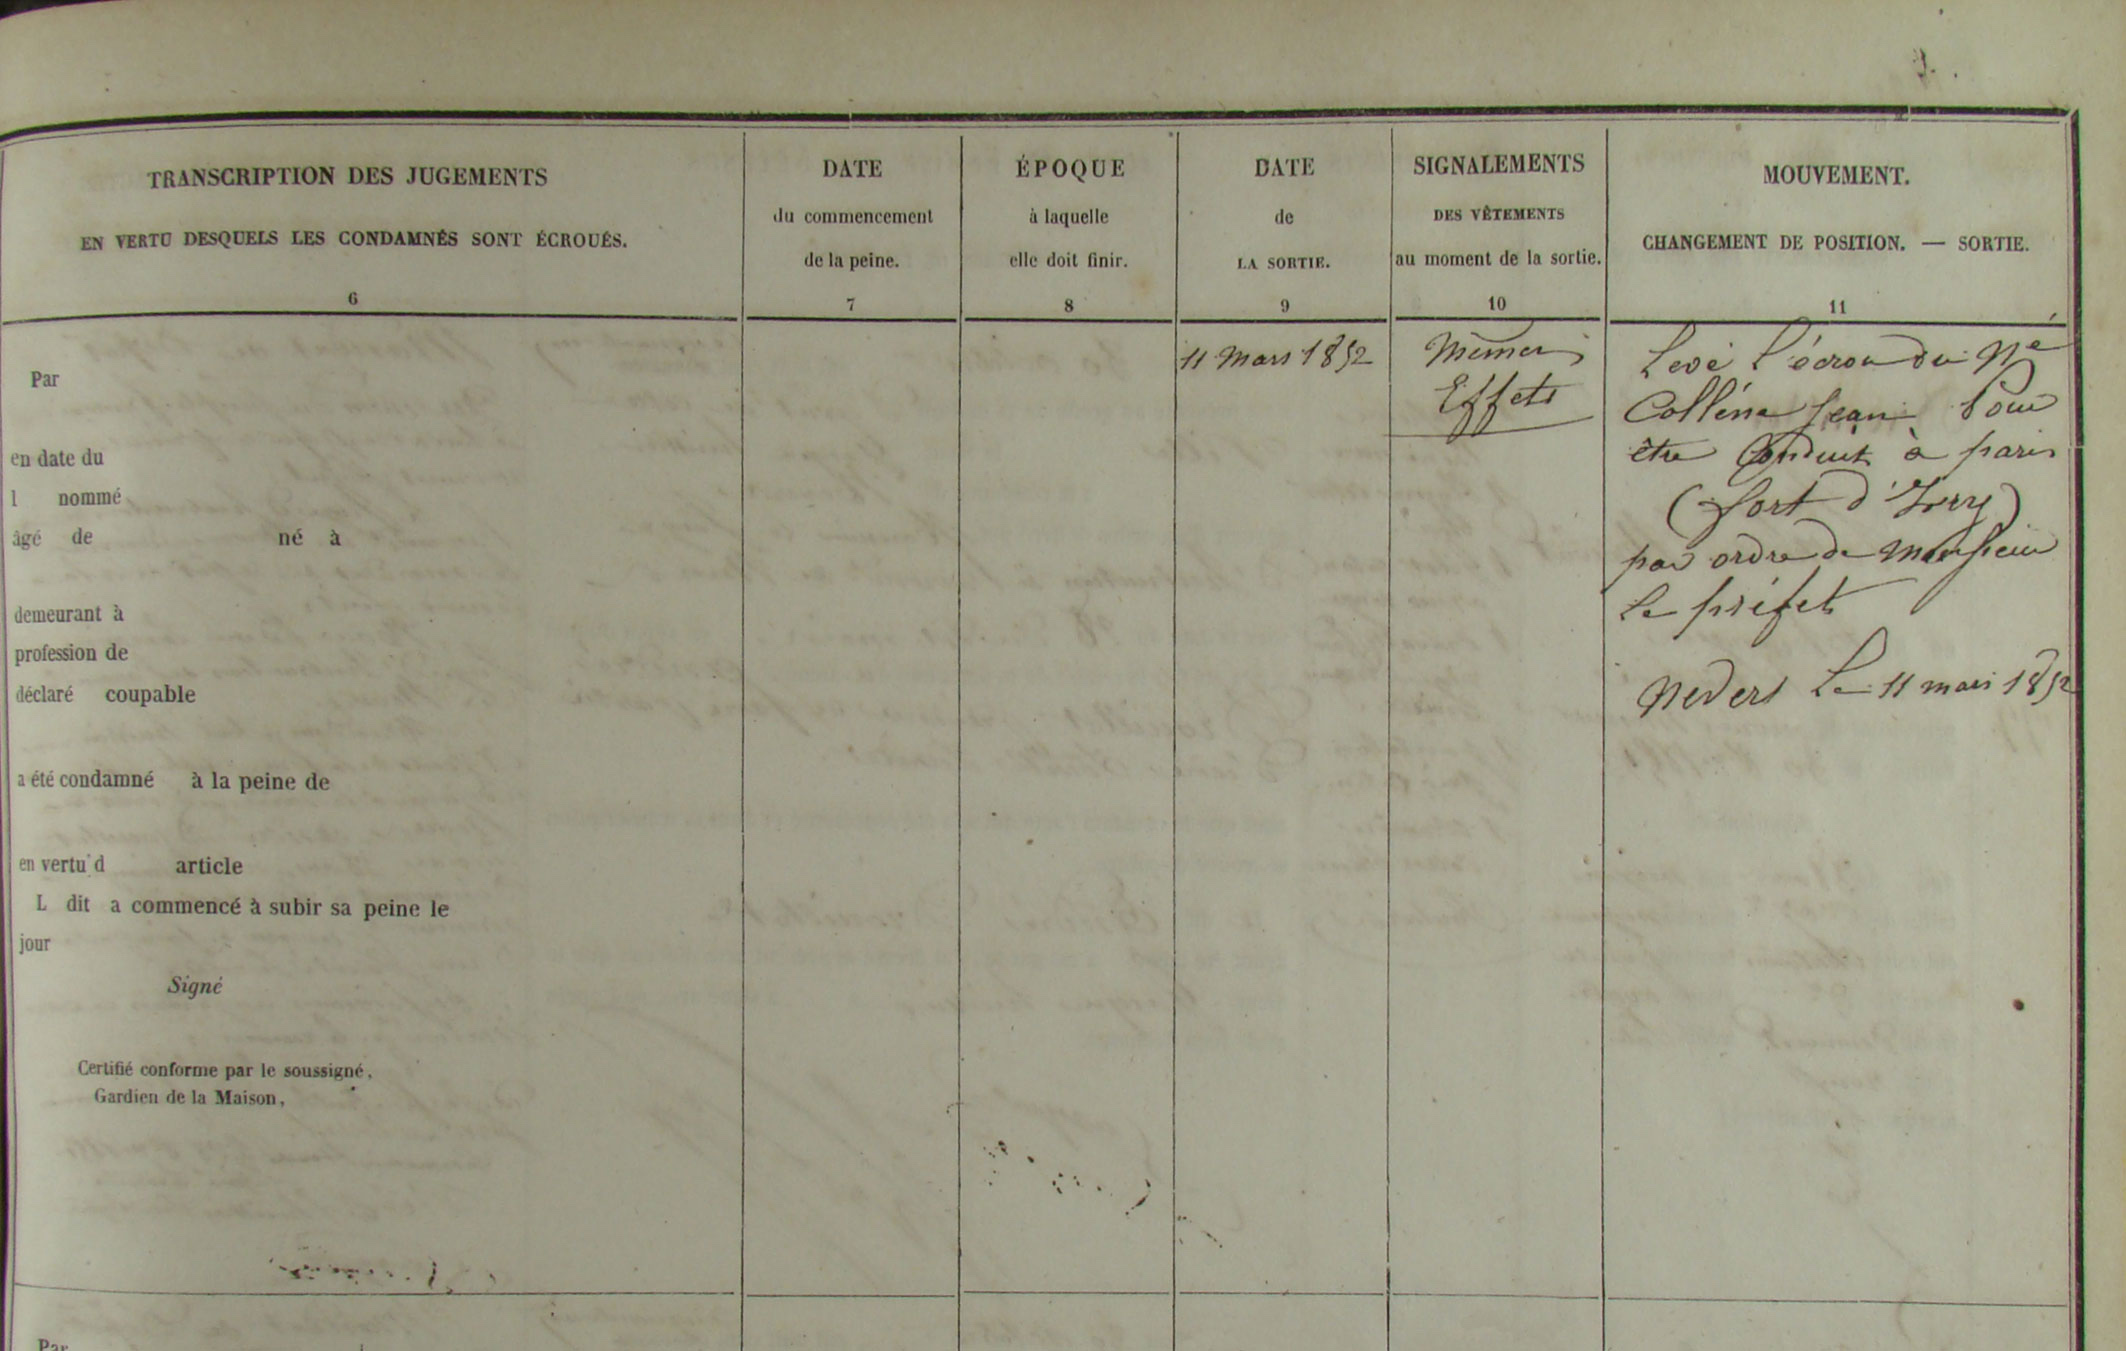 TRANSCRIPTION DES JUGEMENTS
EN VERTU DESQUELS LES CONDAMNÉS SONT ÉCROUÉS.
6
DATE
du commencement
de la peine.
7
ÉPOQUE
à laquelle
elle doit finir.
8
DATE
de
LA SORTIE.
9
SIGNALEMENTS
DES VÊTEMENTS
au moment de la sortie.
10
MOUVEMENT.
CHANGEMENT DE POSITION. — SORTIE.
11
Par
en date du
l nommé
âgé de né à
demeurant à
profession de
déclaré coupable
a été condamné à la peine de
en vertu d article
L dit a commencé à subir sa peine le
jour
Signé
Certifié conforme par le soussigné,
Gardien de la Maison,
11 Mars 1852
Mêmes
Effets
Levé l'écrou du Né
Colléna Jean Pour
être Conduit à paris
(fort d'Ivry)
par ordre de Monsieur
Le préfet
Nevers Le 11 mars 1852
Par